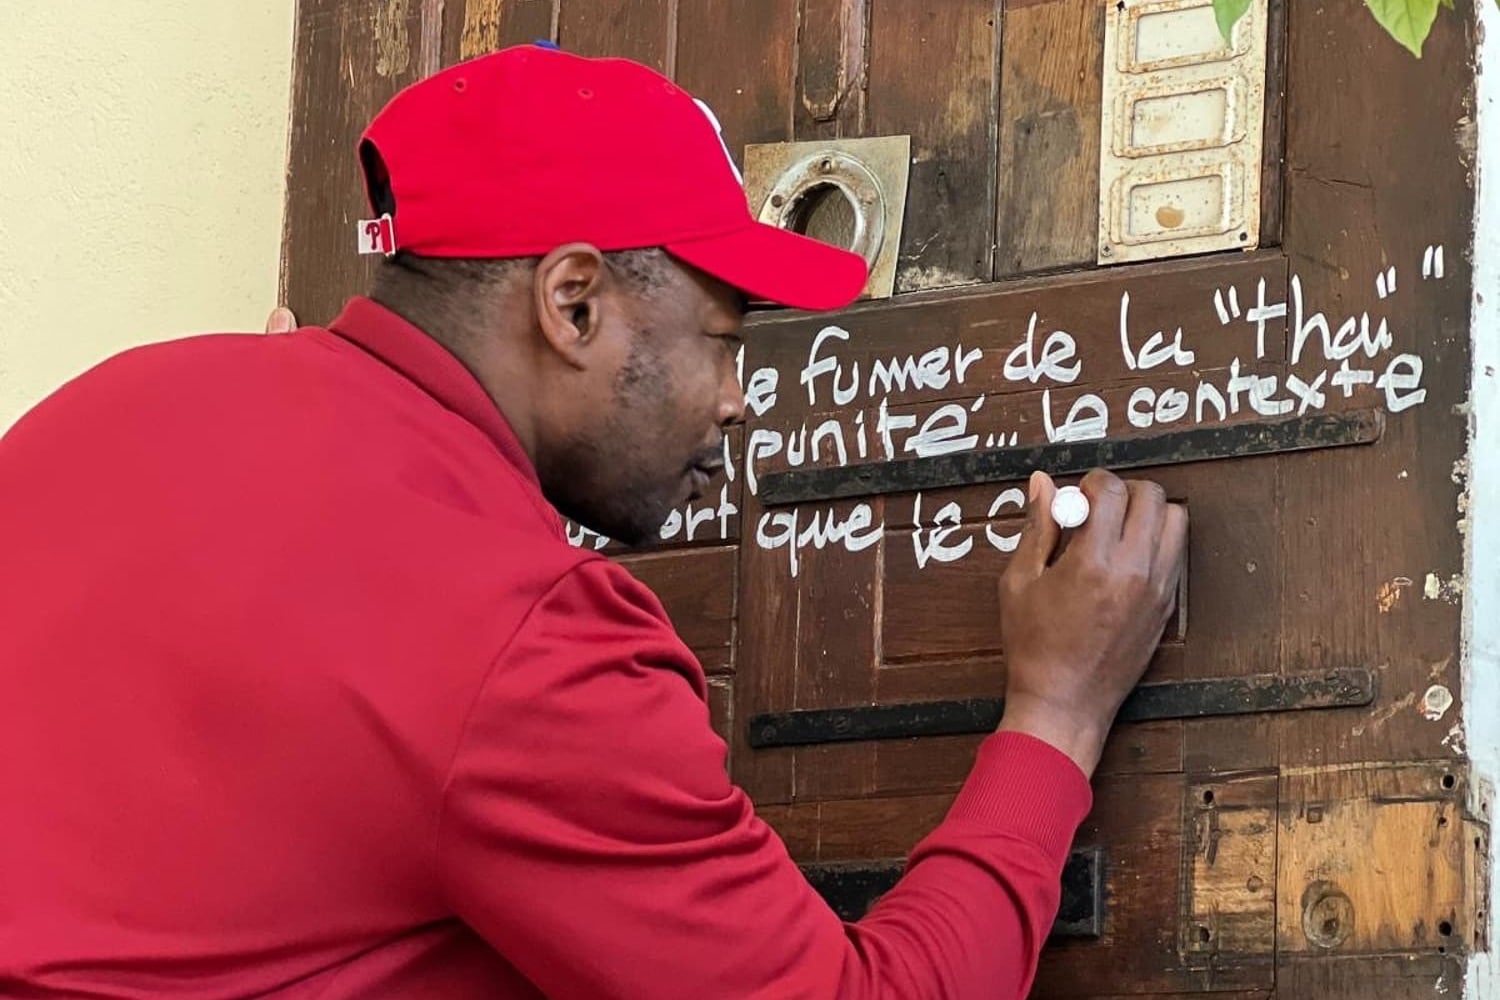 P
le fumer de la "thaï" "
punité... le contexte
ort que le c